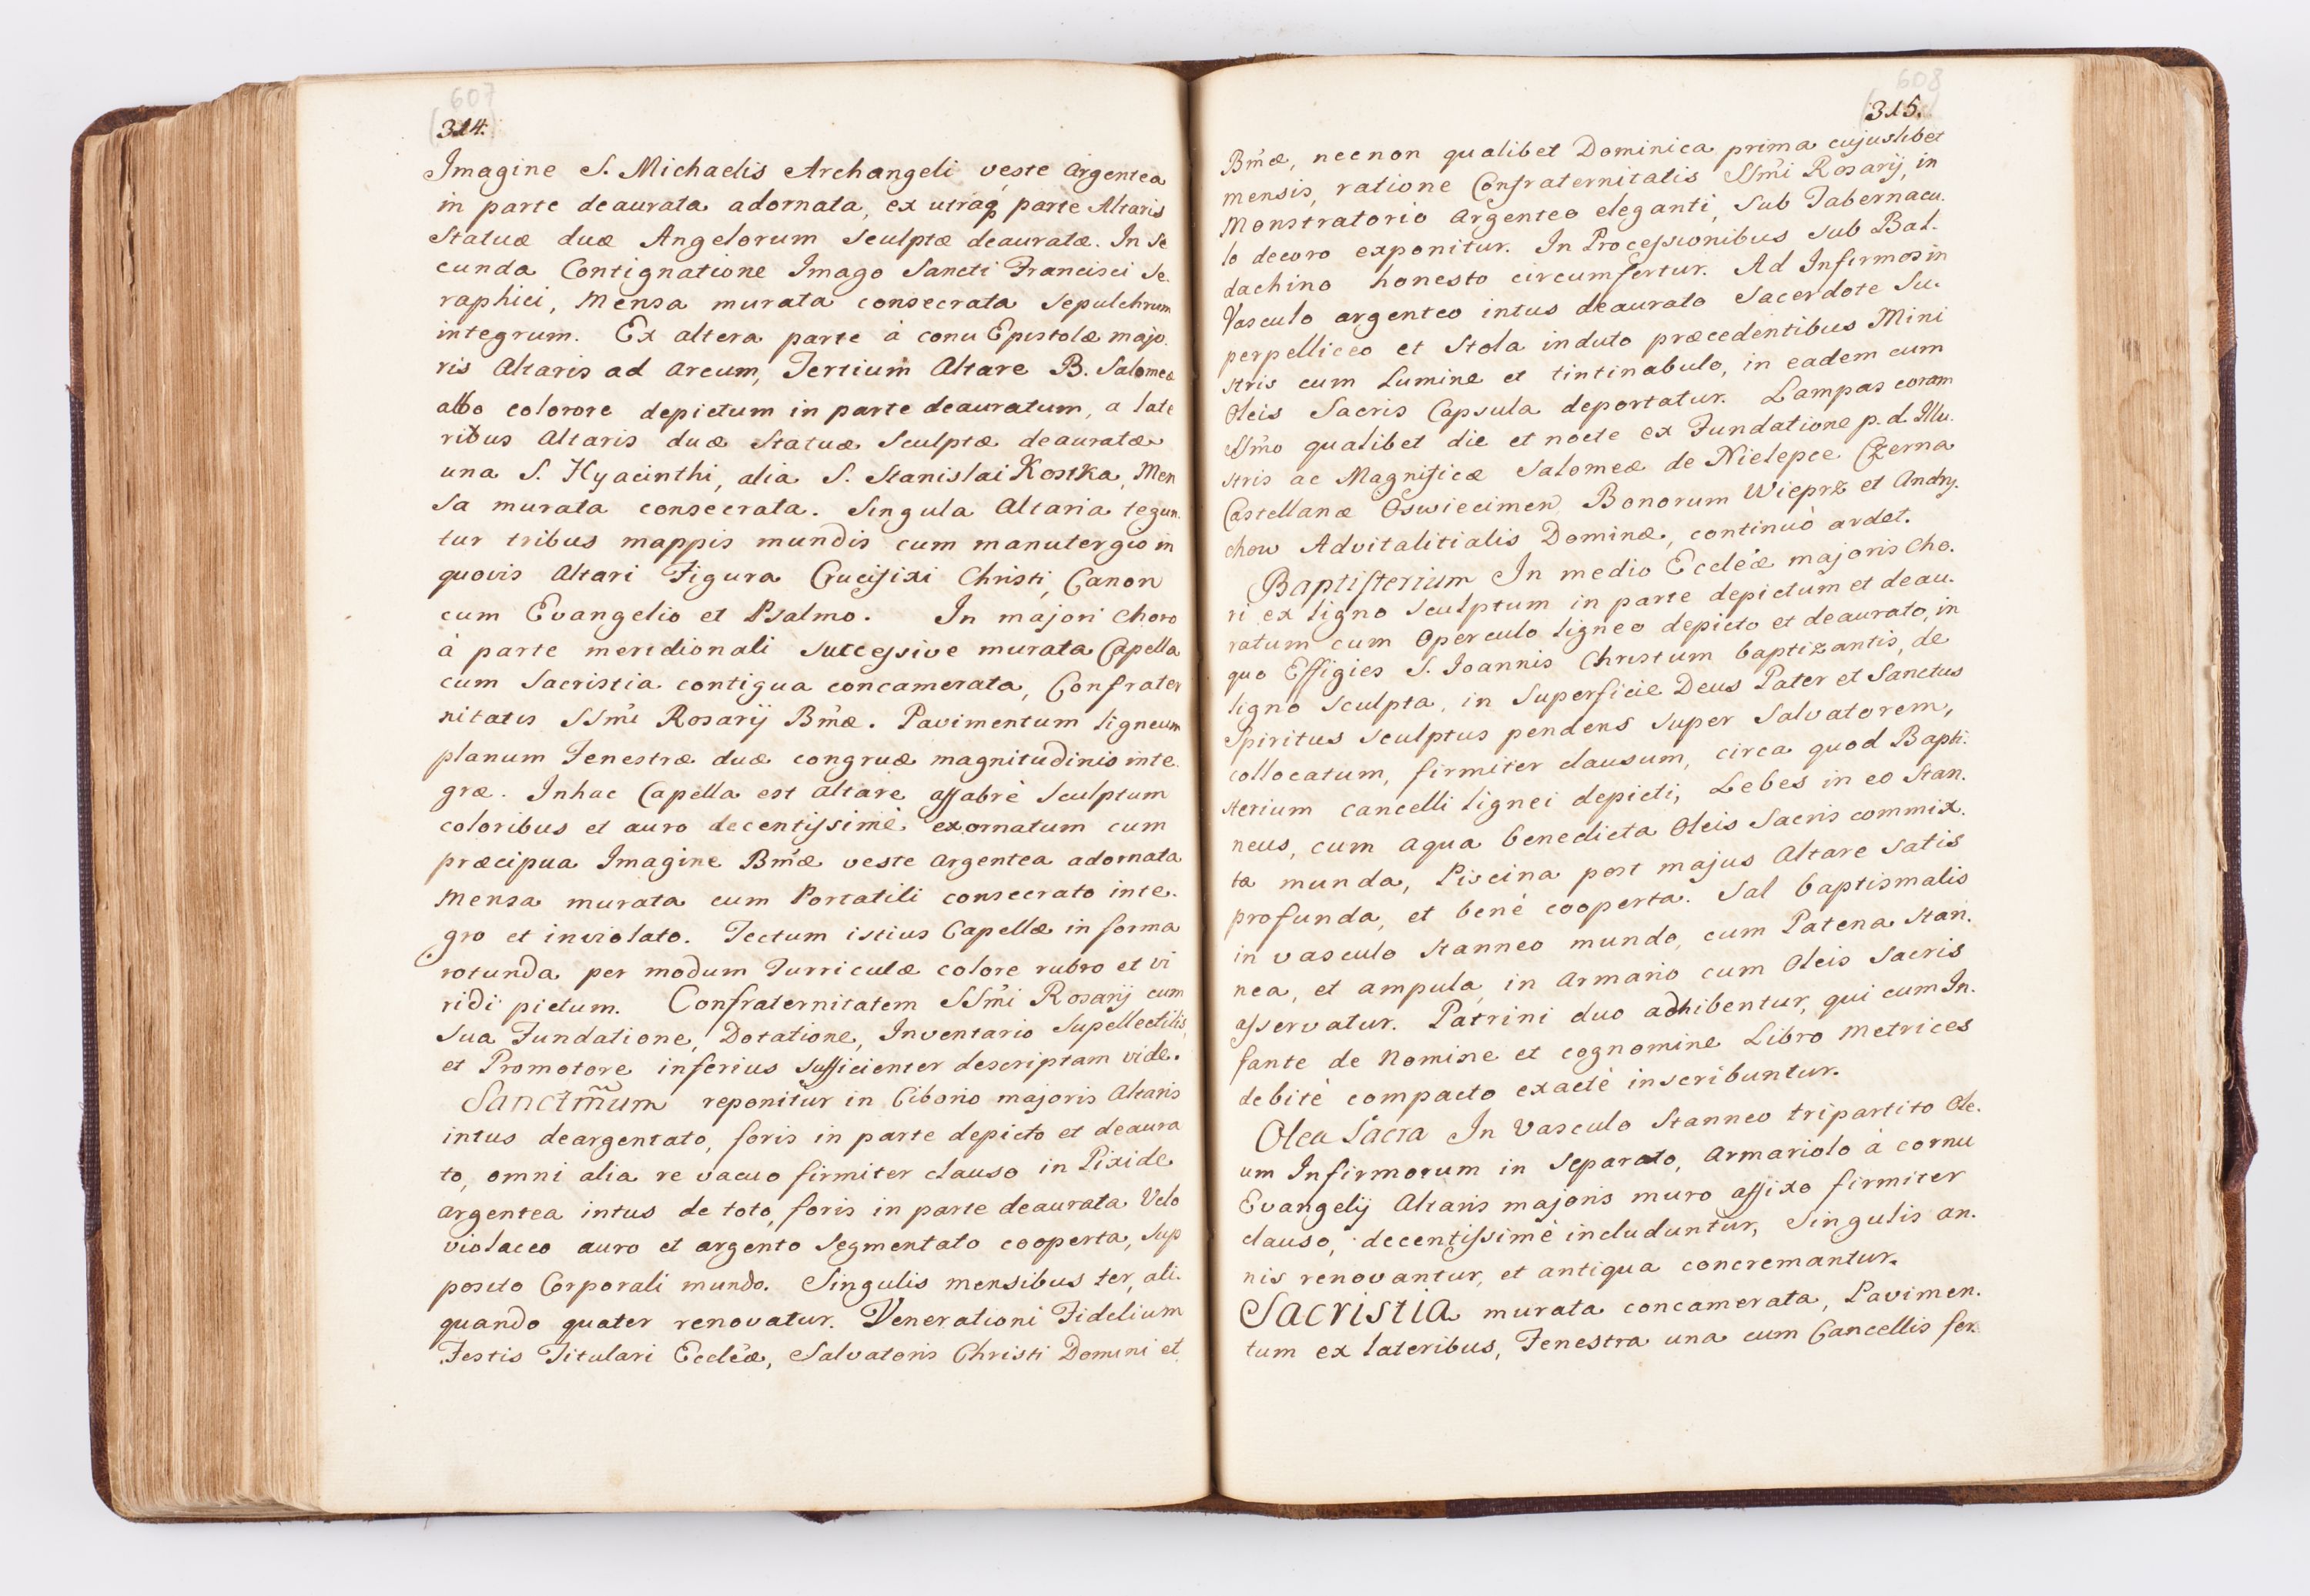 607
314.
Imagine S. Michaelis Archangeli veste argentea
in parte deaurata adornata, ex utraq parte Altaris
Statuæ duæ Angelorum sculptæ deauratæ. In se
cunda Contignatione Imago Sancti Francisci Se.
raphici, Mensa murata consecrata sepulchrum
integrum. Ex altera parte à conu Epistolæ majo.
ris Altaris ad arcum, Tertium Altare B. Salomeæ
albo colorore depictum in parte deauratum, a late
ribus Altaris duæ Statuæ Sculptæ deauratæ
una S. Hyacinthi, alia S. Stanislai Kostka, Men
sa murata consecrata. Singula Altaria tegun.
tur tribus mappis mundis cum manutergio in
quovis Altari Figura Crucifixi Christi, Canon
cum Evangelio et Psalmo. In majori Choro
à parte meridionali successive murata Capella
cum Sacristia contigua concamerata, Confrater
nitatis SSmi Rosarij Bmæ. Pavimentum ligneum
planum Fenestræ duæ congruæ magnitudinis inte.
græ. In hac Capella est altare affabrè Sculptum
coloribus et auro decentissimè exornatum cum
præcipua Imagine Bmæ veste argentea adornata
Mensa murata cum Portatili consecrato inte.
gro et inviolato. Tectum istius Capellæ in forma
rotunda per modum Turriculæ colore rubro et vi
ridi pictum. Confraternitatem SSmi Rosarij cum
sua Fundatione, Dotatione, Inventario Supellectilis,
et Promotore inferius sufficienter descriptam vide.
Sanctm̃um reponitur in Ciborio majoris Altaris
intus deargentato, foris in parte depicto et deaura
to, omni alia re vacuo firmiter clauso in Pixide
argentea intus de toto, foris in parte deaurata Velo
violaceo auro et argento segmentato cooperta, sup
posito Corporali mundo. Singulis mensibus ter, ali.
quando quater renovatur. Venerationi Fidelium
Festis Titulari Ecclæ, Salvatoris Christi Domini et
608
315.
Bmæ, necnon qualibet Dominica prima cujuslibet
mensis, ratione Confraternitatis SSmi Rosarij, in
Monstratorio argenteo eleganti, sub Tabernacu.
lo decoro exponitur. In Processionibus sub Bal.
dachino honesto circumfertur. Ad Infirmos in
Vasculo argenteo intus deaurato Sacerdote Su.
perpelliceo et Stola induto præcedentibus Mini
stris cum Lumine et tintinabulo, in eadem cum
Oleis Sacris Capsula deportatur. Lampas coram
SSmo qualibet die et nocte ex Fundatione p. d. Illu.
stris ac Magnificæ Salomeæ de Nielepce Czerna
Castellanæ Oswiecimen, Bonorum Wieprz et Andry.
chow Advitalitialis Dominæ, continuò ardet.
Baptisterium In medio Eccleæ majoris Cho.
ri ex ligno sculptum in parte depictum et deau.
ratum cum Operculo ligneo depicto et deaurato, in
quo Effigies S. Joannis Christum baptizantis, de
ligno sculpta, in superficie Deus Pater et Sanctus
Spiritus sculptus pendens super Salvatorem,
collocatum, firmiter clausum, circa quod Bapti.
sterium cancelli lignei depicti, Lebes in eo Stan.
neus, cum aqua benedicta Oleis Sacris commix.
ta munda, Piscina post majus Altare satis
profunda, et benè cooperta. Sal baptismalis
in vasculo stanneo mundo, cum Patena stan.
nea, et ampula, in armario cum Oleis Sacris
asservatur. Patrini duo adhibentur, qui cum In.
fante de nomine et cognomine Libro Metrices
debitè compacto exactè inscribuntur.
Olea Sacra In vasculo Stanneo tripartito Ole.
um Infirmorum in separato, armariolo à cornu
Evangelij Altaris majoris muro affixo firmiter
clauso, decentissimè includuntur, singulis an.
nis renovantur, et antiqua concremantur.
Sacristia murata concamerata, Pavimen.
tum ex lateribus, Fenestra una cum Cancellis fer.